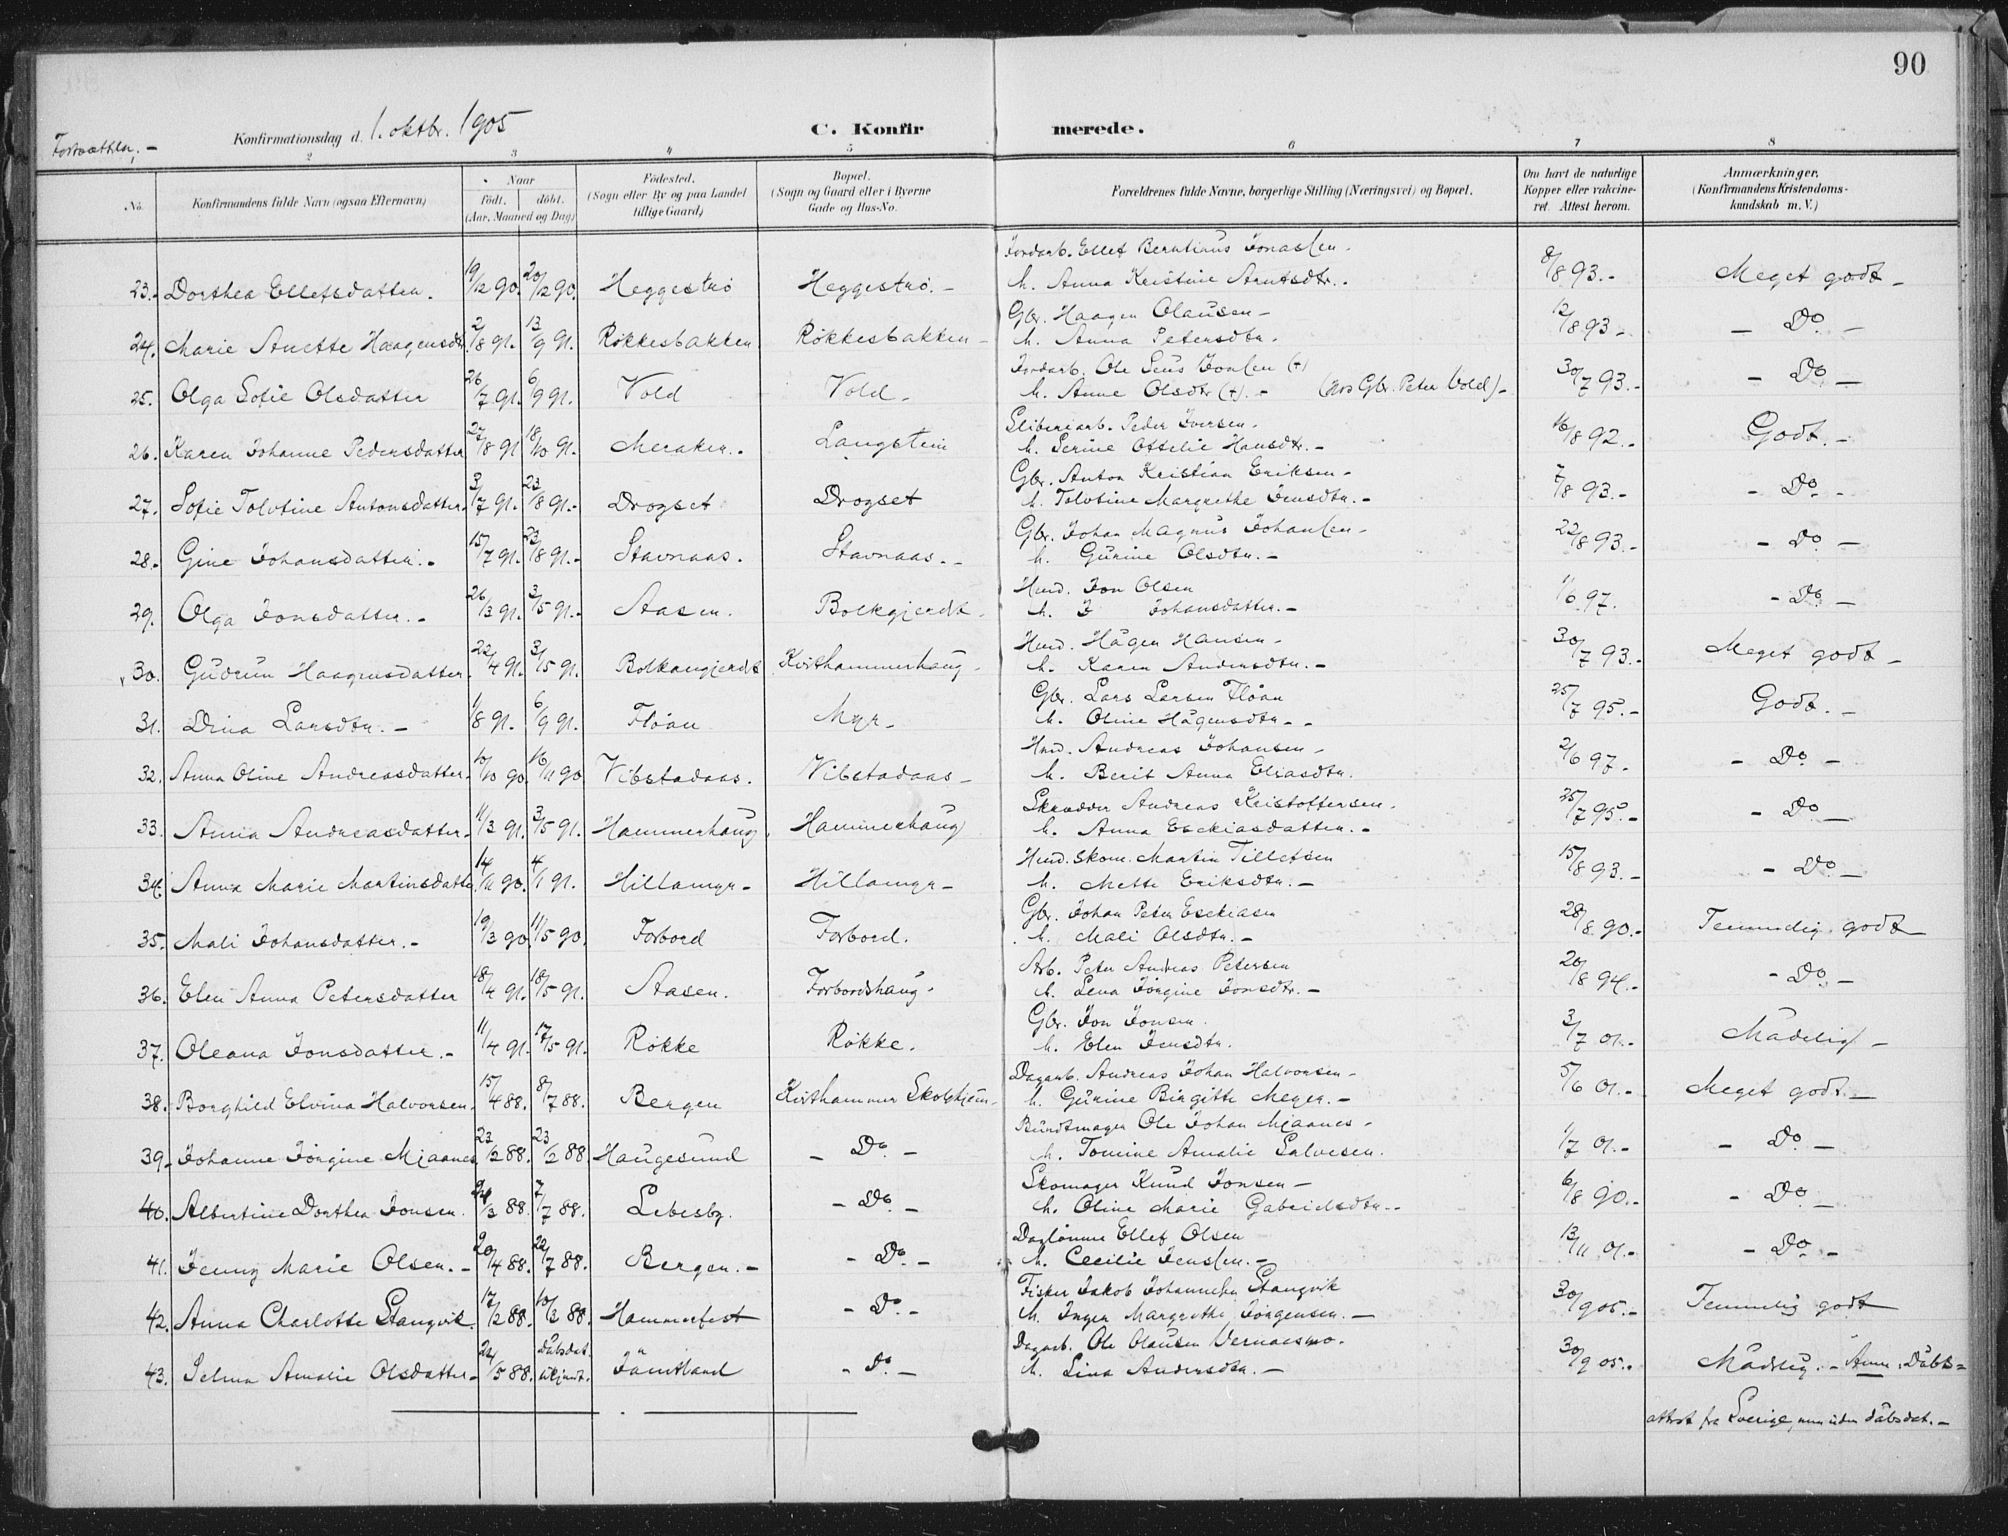 90
Fortsættelse.-
Konfirmationsdag d. 1. oktbr. 1905
C. Konfirmerede.
2 3 4 5 6 7 8
No.
Konfirmandens fulde Navn (ogsaa Efternavn)
Naar
født. døbt.
(Aar, Maaned og Dag)
Fødested.
(Sogn eller By og paa Landet
tillige Gaard)
Bopæl.
(Sogn og Gaard eller i Byerne
Gade og Hus-No.
Forældrenes fulde Navne, borgerlige Stilling (Næringsvei) og Bopæl.
Om havt de naturlige
Kopper eller vakcine-
ret. Attest herom.
Anmærkninger.
(Konfirmandens Kristendoms-
kundskab m. V.)
Jordarb. Ellef Berntinus Jonassen.
23. Dorthea Ellefsdatter. 19/12 90. 20/12 90. Heggestrø Heggestrø.- h. Anna Kristine Arntsdtr.. 8/8 93.- Meget godt -
Gbr. Haagen Olausen -
24. Marie Anette Haagensdtr. 2/8 91. 13/9 91. Røkkesbakken Røkkesbakken - h. Anna Petersdtr. 12/8 93 - - Do -
Jordarb. Ole Jonsen (+)
25. Olga Sofie Olsdatter 26/7 91. 6/9 91. Vold Vold. h. Anne Olsdtr (+). - (hos Gbr. Peter Vold) - 30/7 93.- - Do -
Sliberiarb. Peder Iversen.
26. Karen Johanne Pedersdatter 27/8 91 18/10 91. Meraker. Langstein h. Serine Ottelie Hansdtr. - 16/8 92.- Godt.-
Gbr. Anton Kristian Eriksen -
27. Sofie Tolvtine Antonsdatter. 3/7 91. 23/8 91.- Drogset Drogset h. Tolvtine Margrethe Jensdtr. - 7/8 93.- - Do -
Gbr. Johan Magnus Johansen -
28. Gine Johansdatter.- 15/7 91. 23/8 91.- Stavnaas. Stavnaas.- h. Gurine Olsdtr. - 22/8 93.- - Do -
Husd. Jon Olsen
29. Olga Jonsdatter.- 26/3 91. 3/5 91.- Aasen. Bolkgjerdt. h. J Johansdatter.- 1/6 97. - Do -
Husd. Hågen Hansen -
30. Gudrun Haagensdatter. 22/4 91. 3/5 91. Bolkangjerdt Kvithammerhaug. h. Karen Andersdtr. - 30/7 93.- Meget godt -
Gbr. Lars Larsen Fløan
31. Dina Larsdtr. - 1/8 91. 6/9 91. Fløan Myr- h. Oline Hågensdtr. - 25/7 95.- Godt. -
Husd. Andreas Johansen -
32. Anna Oline Andreasdatter. 10/10 90. 16/11 90 Vibstadaas. Vibstadaas - h. Berit Anna Eliasdtr. 2/6 97. - Do -
Skrædder Andreas Kristoffersen.
33. Anna Andreasdatter. 11/3 91. 3/5 91. Hammerhaug. Hammerhaug h. Anna Esekiasdatter.- 25/7 95.- - Do -
Husd. skom. Martin Tillefsen
34. Anna Marie Martinsdatter 14/11 90. 4/1 91. Hillamyr - Hillamyr - h. Mette Eriksdtr. - 15/8 93.- - Do -
Gbr. Johan Peter Esekiasen
35. Mali Johansdatter.- 19/3 90 11/5 90. Forbord Forbord. h. Mali Olsdtr. - 28/8 90.- Temmelig godt
Arb. Peter Andreas Petersen
36. Elen Anna Petersdatter 18/4 91. 18/5 91. Aasen. Forbordshaug. h. Lena Jørgine Jonsdtr. - 20/8 94.- - Do -
Gbr. Jon Jonsen.
37. Oleana Jonsdatter.- 11/4 91. 17/5 91. Røkke Røkke. h. Elen Jensdtr. 3/7 01.- Mådelig -
Dagarb. Andreas Johan Halvorsen -
38. Borghild Elvina Halvorsen. 15/4 88. 8/7 88. Bergen Kvithammer Skolehjem. h. Gurine Birgitte Meyer. - 5/6 01.- Meget godt.-
Buntmager Ole Johan Mjaanes -
39. Johanne Jørgine Mjaanes. 23/2 88. 23/2 88 Haugesund - Do - h. Tomine Amalie Salvesen. 1/7 01.- - Do -
Skomager Knud Jonsen -
40. Albertine Dorthea Jonsen. 24/3 88. 7/7 88. Lebesby. - Do - h. Oline Marie Gabrielsdtr.. 6/8 90.- - Do -
Daglønner Ellef Olsen
41. Jenny Marie Olsen. - 20/4 88. 22/7 88. Bergen.- - Do - h. Cecilie Jenssen. - 13/11 01.- - Do -
Fisker Jakob Johannesen Stangvik
42. Anna Charlotte Stangvik. 17/2 88. 10/3 88. Hammerfest - Do - h. Inger Margrethe Jørgensen. - 30/9 05.- Temmelig godt
Dagarb. Ole Olausen Vernaesmo.
43. Selma Amalie Olsdatter- 24/5 88. Dåbsdat. ukjendt. Jämtland - Do - h. Lina Andersdtr. - 30/9 05.. Mådelig. - Anm. Dåbs=
attest fra Sverige, men uden dåbsdat.-